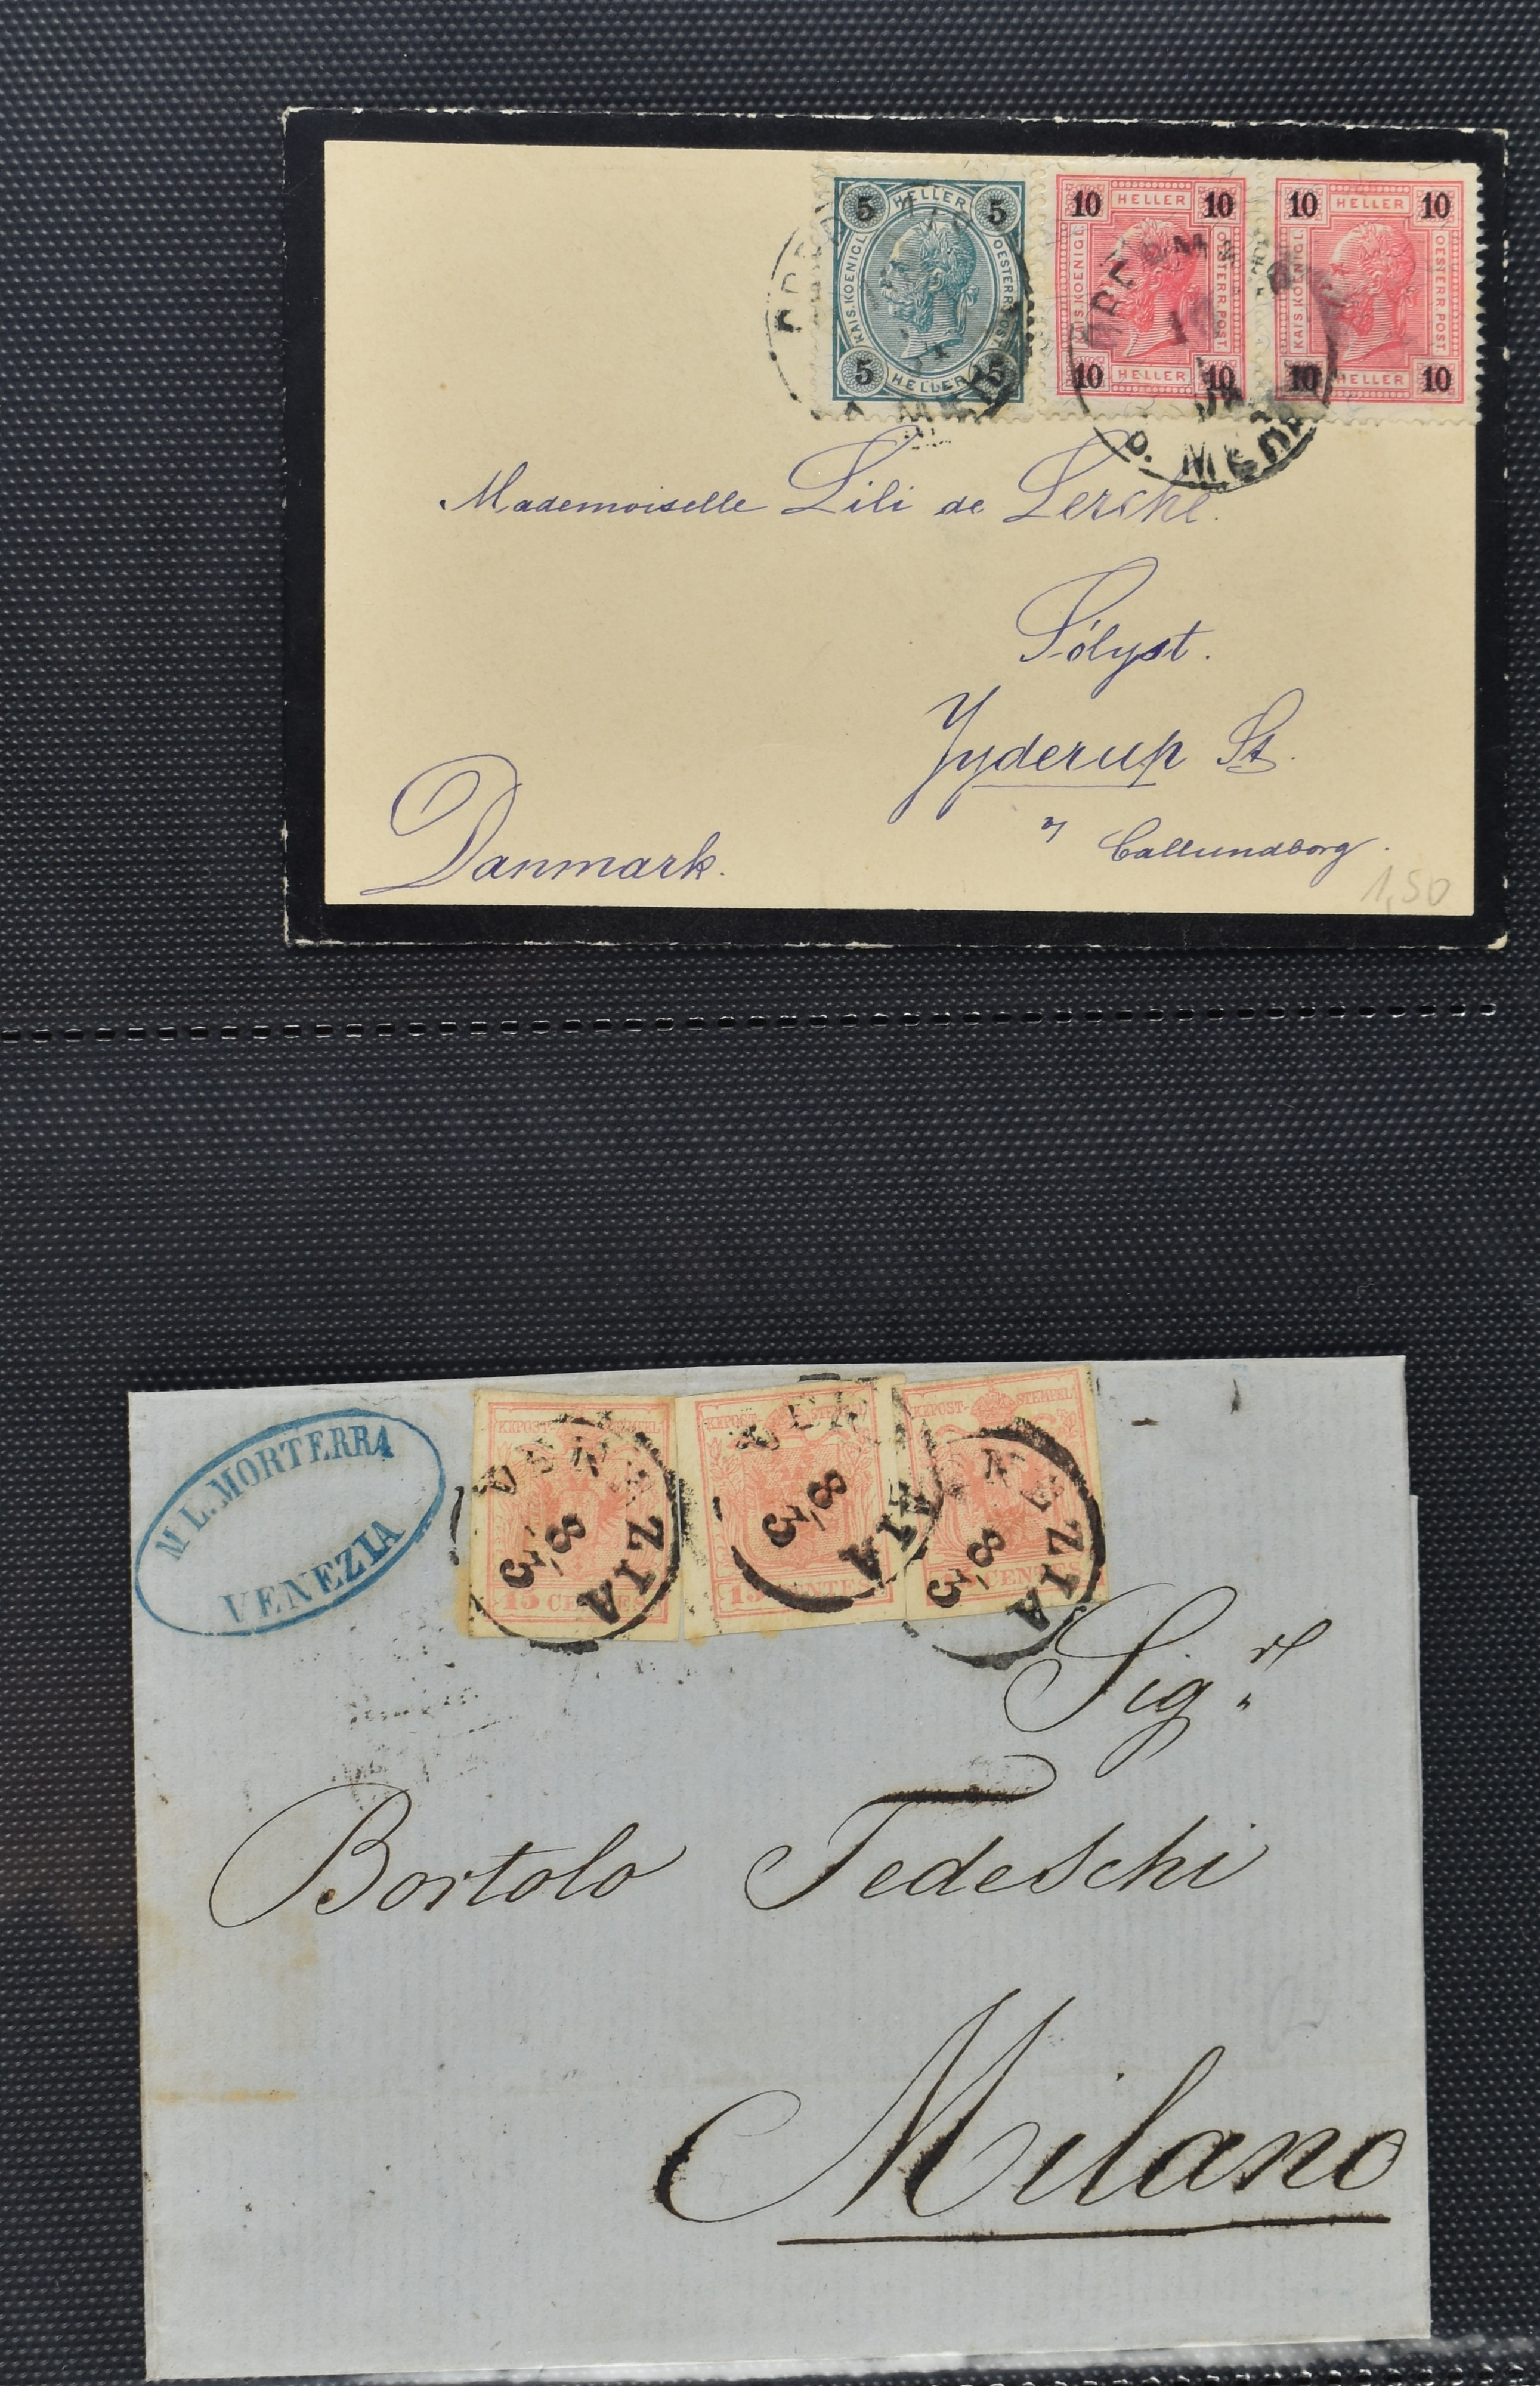 5 HELLER 5
KAIS. KOENIGL. OESTERR. POST.
5 HELLER 5
10 HELLER 10
KAIS. KOENIGL. OESTERR. POST.
10 HELLER 10
10 HELLER 10
KAIS. KOENIGL. OESTERR. POST.
10 HELLER 10
Mademoiselle Lili de Lerche.
Sólyst.
Jyderup St.
Callundborg.
Danmark.
1,50
M L. MORTERRA
VENEZIA
STEMPEL
VENEZIA
8/3
15 CENTES
VENEZIA
8/3
15 CENTES
KKPOST-STEMPEL
VENEZIA
8/3
CENTES
Sigr
Bortolo Tedeschi
Milano